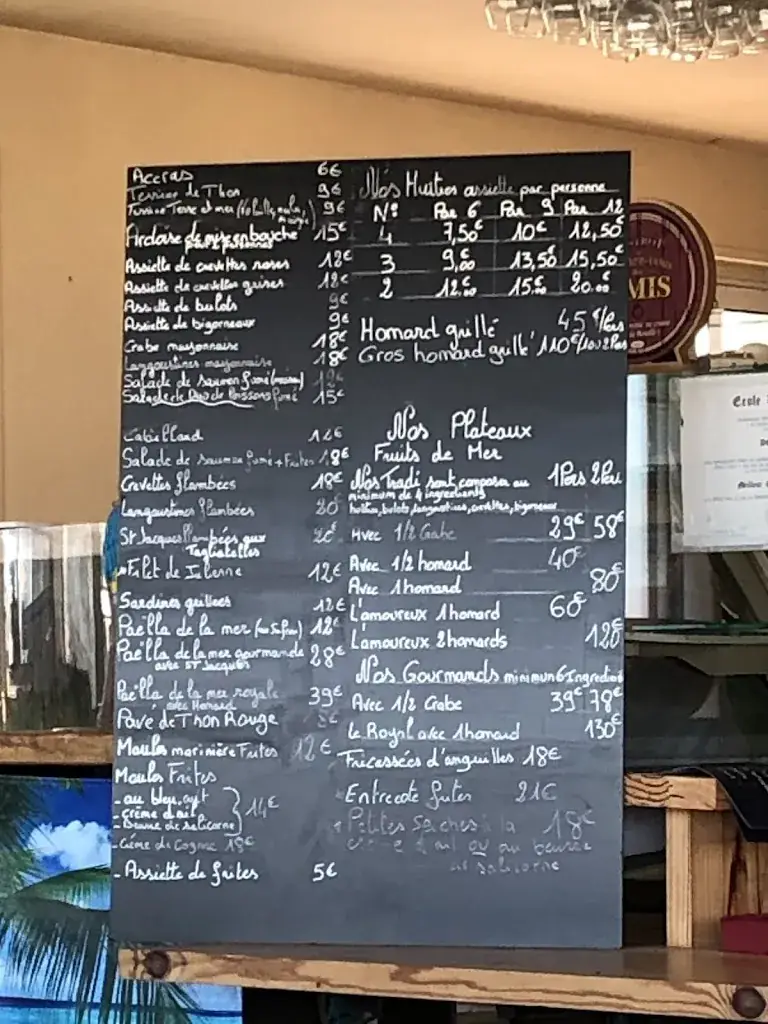 Accras 6€
Terrine de Thon 9€
Terrine Terre et mer 9€
Ardoise de mise en bouche 15€
pour 2 personnes
Assiette de crevettes roses 12€
Assiette de crevettes grises 12€
Assiette de bulots 9€
Assiette de bigorneaux 9€
Crabe mayonnaise 18€
Langoustines mayonnaise 18€
Salade de saumon fumé (maison)
Salade de Duo de Poissons fumé 15€
Cabillaud 12€
Salade de saumon fumé + Frites 18€
Crevettes flambées 18€
Langoustines flambées 20
St Jacques flambées aux
Tagliatelles
Filet de Julienne 12€
Sardines grillées 12€
Paëlla de la mer 12€
Paëlla de la mer gourmande 28€
avec ST Jacques
Paëlla de la mer royale 39€
avec Homard
Pavé de Thon Rouge
Moules marinière Frites 12€
Moules Frites
- au bleu, 14€
- crème d'ail
- Beurre de salicorne
- Crème de Cognac 18€
- Assiette de frites 5€
Nos Huitres assiette par personne
N° Par 6 Par 9 Par 12
4 7,50€ 10€ 12,50€
3 9,00 13,50 15,50€
2 12.00 15.00 20.00€
Homard grillé 45€/Pers
Gros homard grillé 110€/1 ou 2 Pers
Nos Plateaux
Fruits de Mer
Nos Tradi sont composer au 1 Pers 2 Pers
minimum de 4 ingredients
huitres, bulots, langoustines, crevettes, bigorneaux
Avec 1/2 Crabe 29€ 58€
Avec 1/2 homard 40€
Avec 1 homard 80€
L'amoureux 1 homard 60€
L'amoureux 2 homards 120€
Nos Gourmands minimum 6 Ingredients
Avec 1/2 Crabe 39€ 78€
Le Royal avec 1 homard 130€
Fricassées d'anguilles 18€
Entrecote frites 21€
Petites Seiches à la 18€
crème d'ail ou au beurre
de salicorne
MIS
Ecole